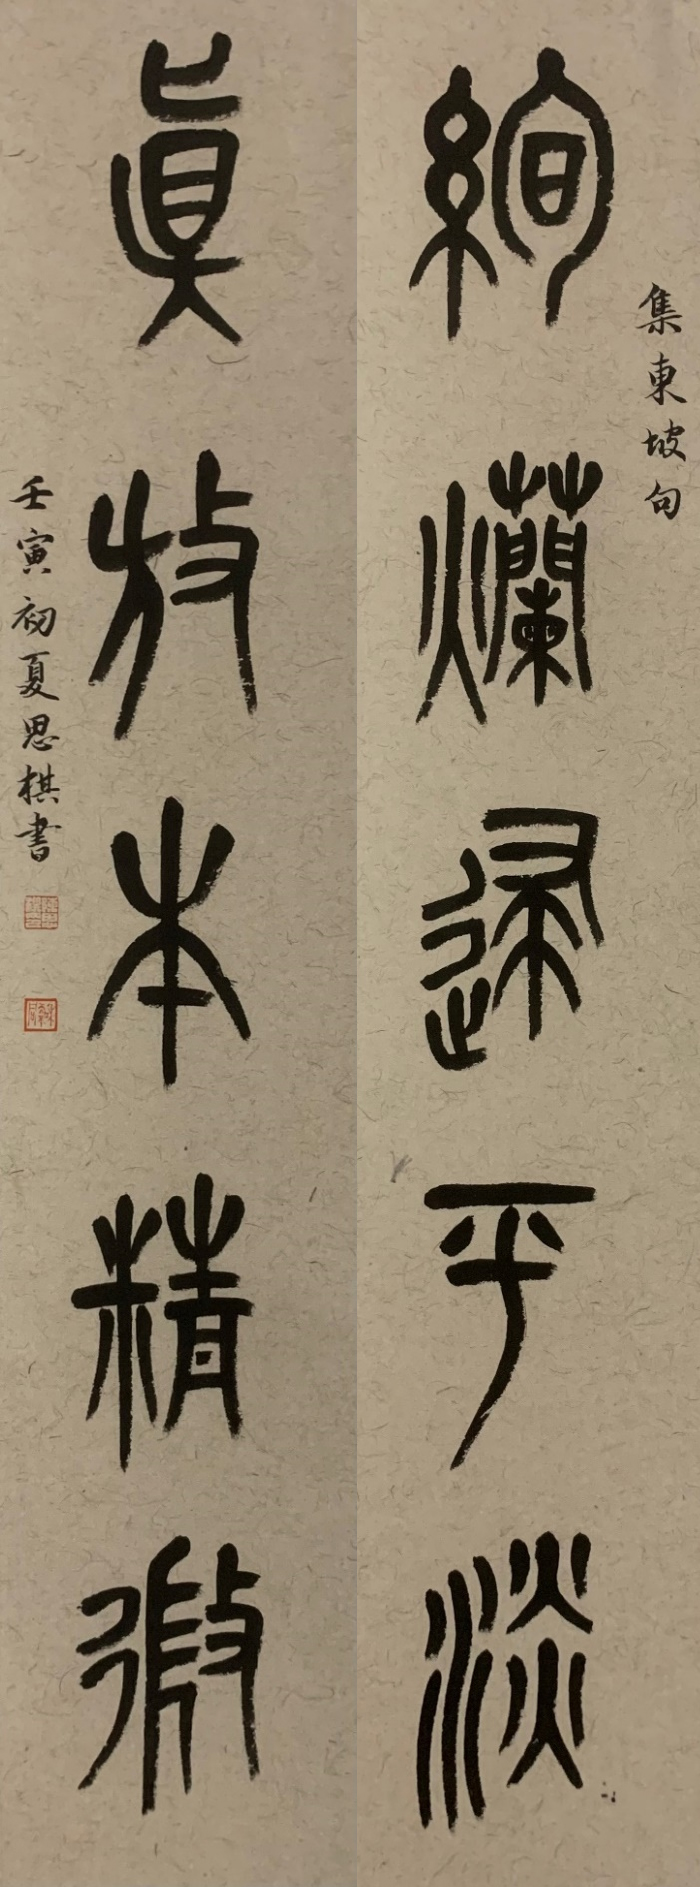 集東坡句
絢爛歸平淡
眞放本精微
壬寅初夏思棋書